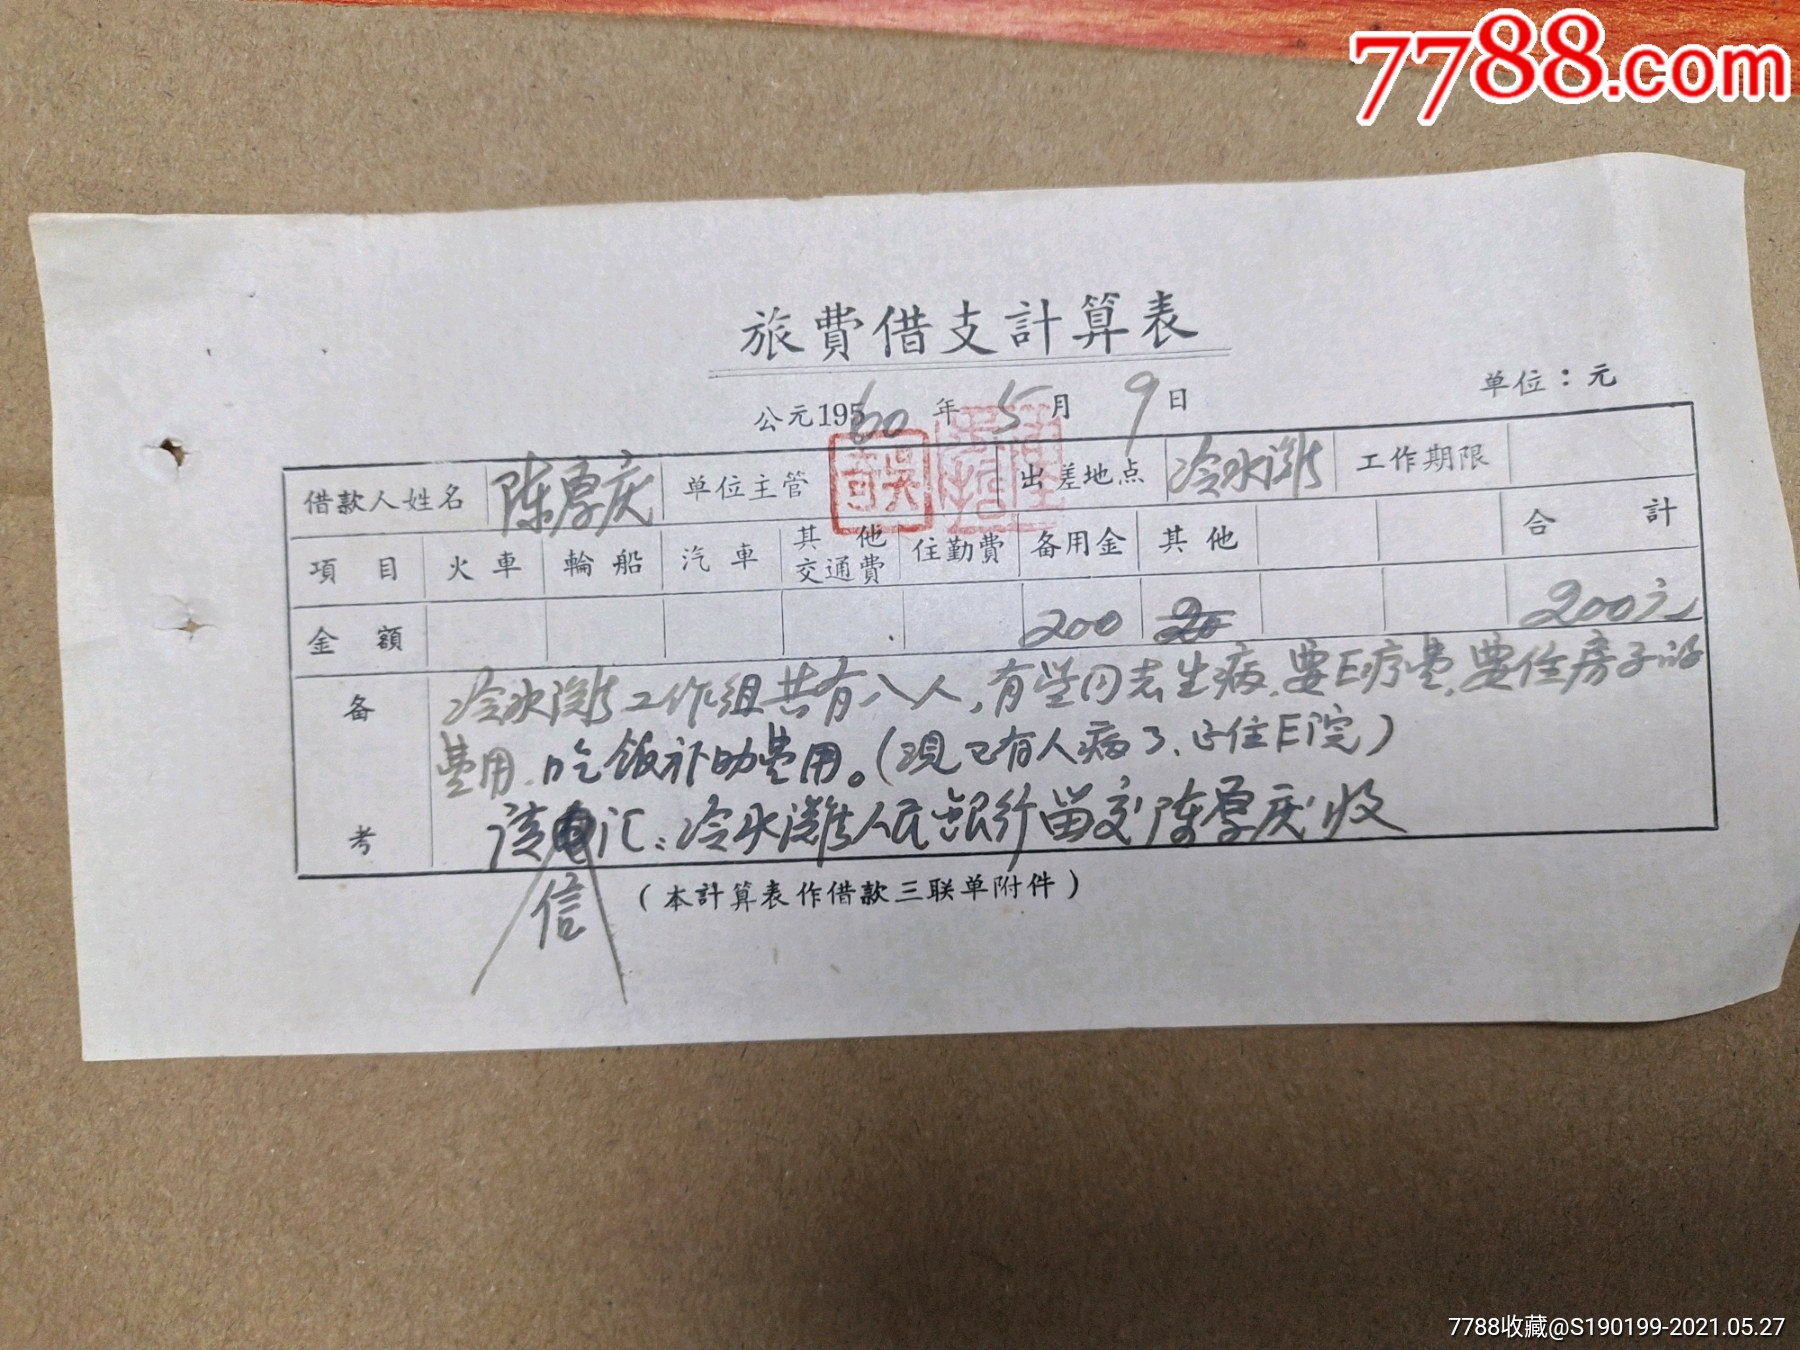 7788.com
旅費借支計算表
公元1960年5月9日
单位：元
借款人姓名 陈厚庆 单位主管 出差地点 冷水滩 工作期限
項目 火車 輪船 汽車 其他交通費 住勤費 备用金 其他 合計
金額 200 20 200元
备考
冷水滩工作组共有八人，有些同志生病、要医疗费，要住房子的
费用、吃饭补助费用。（现已有人病了、正住医院）
该电汇：冷水滩人民银行留交陈厚庆收
信
（本計算表作借款三联单附件）
7788收藏@S190199-2021.05.27